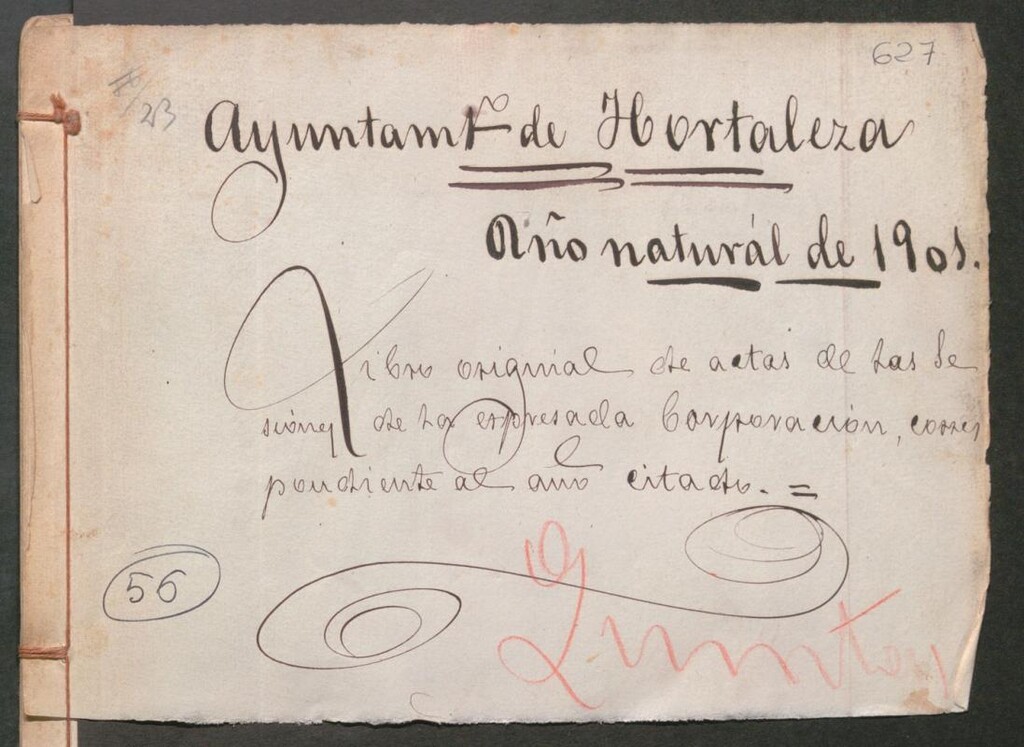 627
23
Ayuntamtº de Hortaleza
Año naturál de 1901.
Libro original de actas de las Se
siones de la expresada Corporación, corres
pondiente al año citado. =
56